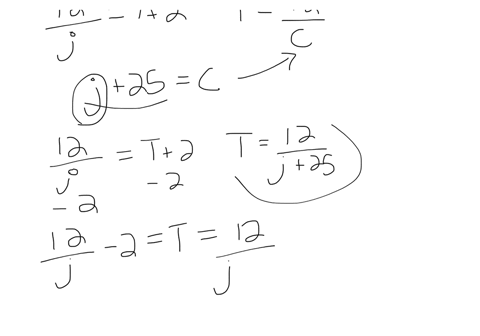 12/j = T+2    T = 12/C
j+25 = C
12/j = T+2    T = 12/(j+25)
-2    -2
12/j - 2 = T = 12/j